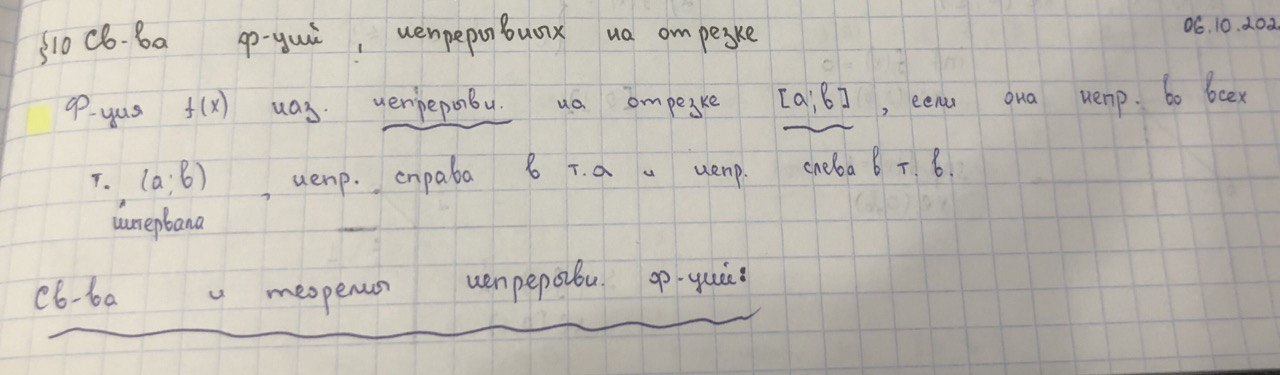 §10 Св-ва ф-ций, непрерывных на отрезке
06.10.202
Ф-ция f(x) наз. непрерывн. на отрезке [a;b], если она непр. во всех
т. (a;b), непр. справа в т.a и непр. слева в т. b.
интервала
Св-ва и теоремы непрерывн. ф-ций: